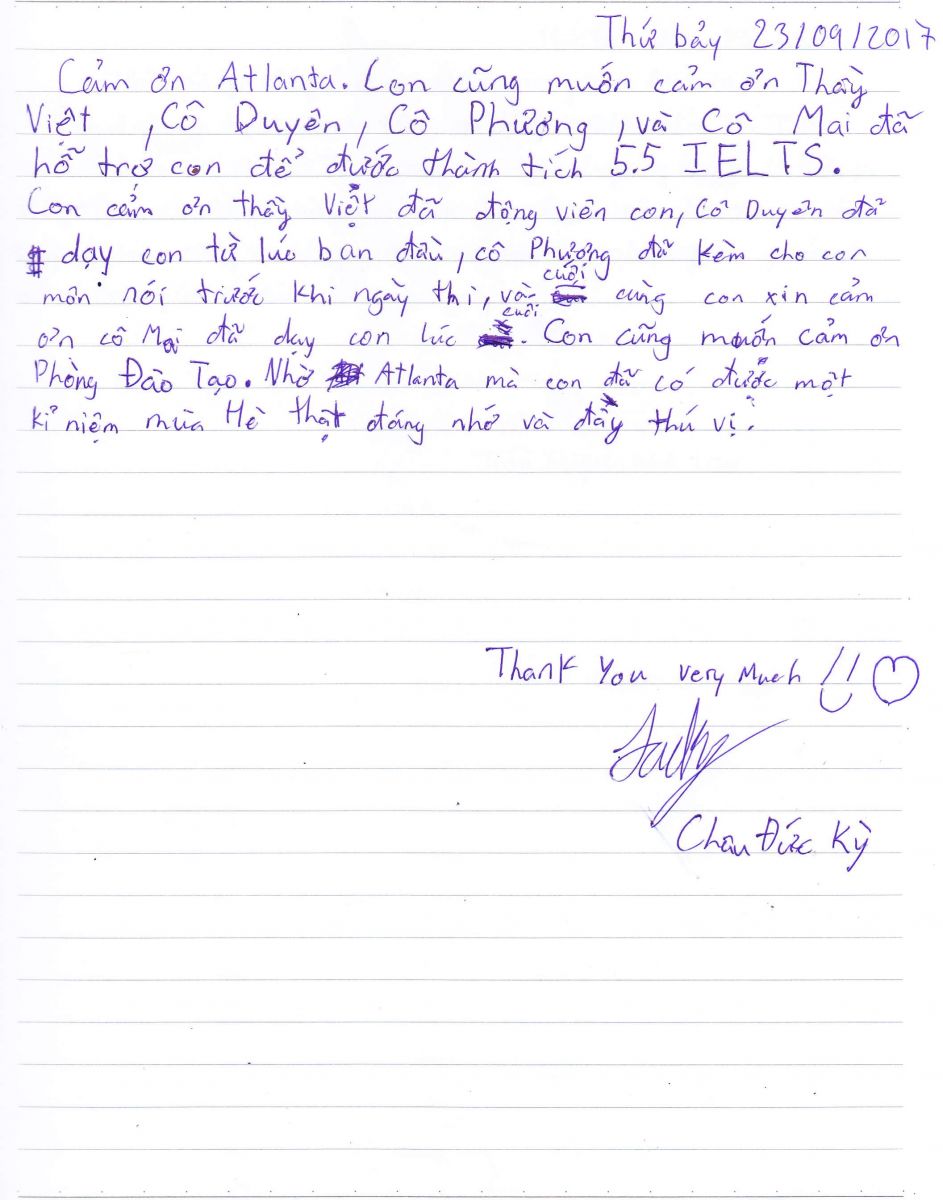 Thứ bảy 23/09/2017
Cảm ơn Atlanta. Con cũng muốn cảm ơn Thầy
Việt , Cô Duyên, Cô Phương, và Cô Mai đã
hỗ trợ con để được thành tích 5.5 IELTS.
Con cảm ơn thầy Việt đã động viên con, Cô Duyên đã
dạy con từ lúc ban đầu, cô Phương đã kèm cho con
môn nói trước khi ngày thi, và cuối cùng con xin cảm
ơn cô Mai đã dạy con lúc cuối. Con cũng muốn cảm ơn
Phòng Đào Tạo. Nhờ Atlanta mà con đã có được một
kỉ niệm mùa Hè thật đáng nhớ và đầy thú vị.
Thank You very Much !!
Châu Đức Kỳ